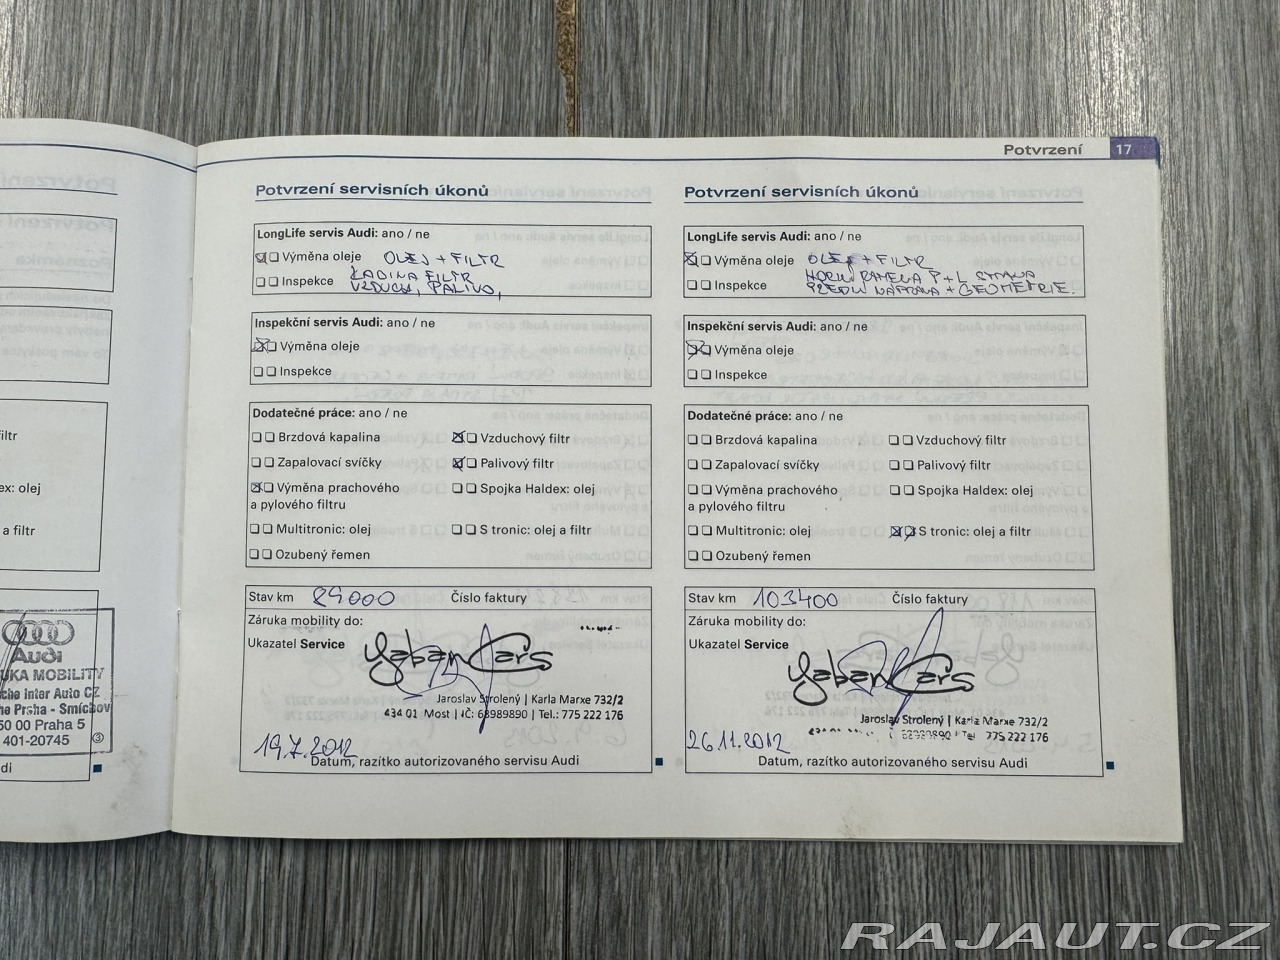 Potvrzení 17
iltr
ex: olej
a filtr
Audi
UKA MOBILITY
che Inter Auto CZ
ha Praha - Smíchov
50 00 Praha 5
401-20745 3
di
Potvrzení servisních úkonů
LongLife servis Audi: ano / ne
Výměna oleje OLEJ + FILTR
Inspekce KABINA FILTR
VZDUCH, PALIVO,
Inspekční servis Audi: ano / ne
Výměna oleje
Inspekce
Dodatečné práce: ano / ne
Brzdová kapalina Vzduchový filtr
Zapalovací svíčky Palivový filtr
Výměna prachového Spojka Haldex: olej
a pylového filtru
Multitronic: olej S tronic: olej a filtr
Ozubený řemen
Stav km 89000 Číslo faktury
Záruka mobility do:
Ukazatel Service
YabanCars
Jaroslav Strolený | Karla Marxe 732/2
434 01 Most | IČ: 68989890 | Tel.: 775 222 176
19.7.2012
Datum, razítko autorizovaného servisu Audi
Potvrzení servisních úkonů
LongLife servis Audi: ano / ne
Výměna oleje OLEJ + FILTR
Inspekce HORNÍ RAMENA P+L STRANA
PŘEDNÍ NÁPRAVA + GEOMETRIE.
Inspekční servis Audi: ano / ne
Výměna oleje
Inspekce
Dodatečné práce: ano / ne
Brzdová kapalina Vzduchový filtr
Zapalovací svíčky Palivový filtr
Výměna prachového Spojka Haldex: olej
a pylového filtru
Multitronic: olej S tronic: olej a filtr
Ozubený řemen
Stav km 103400 Číslo faktury
Záruka mobility do:
Ukazatel Service
YabanCars
Jaroslav Strolený | Karla Marxe 732/2
775 222 176
26.11.2012
Datum, razítko autorizovaného servisu Audi
RAJAUT.CZ